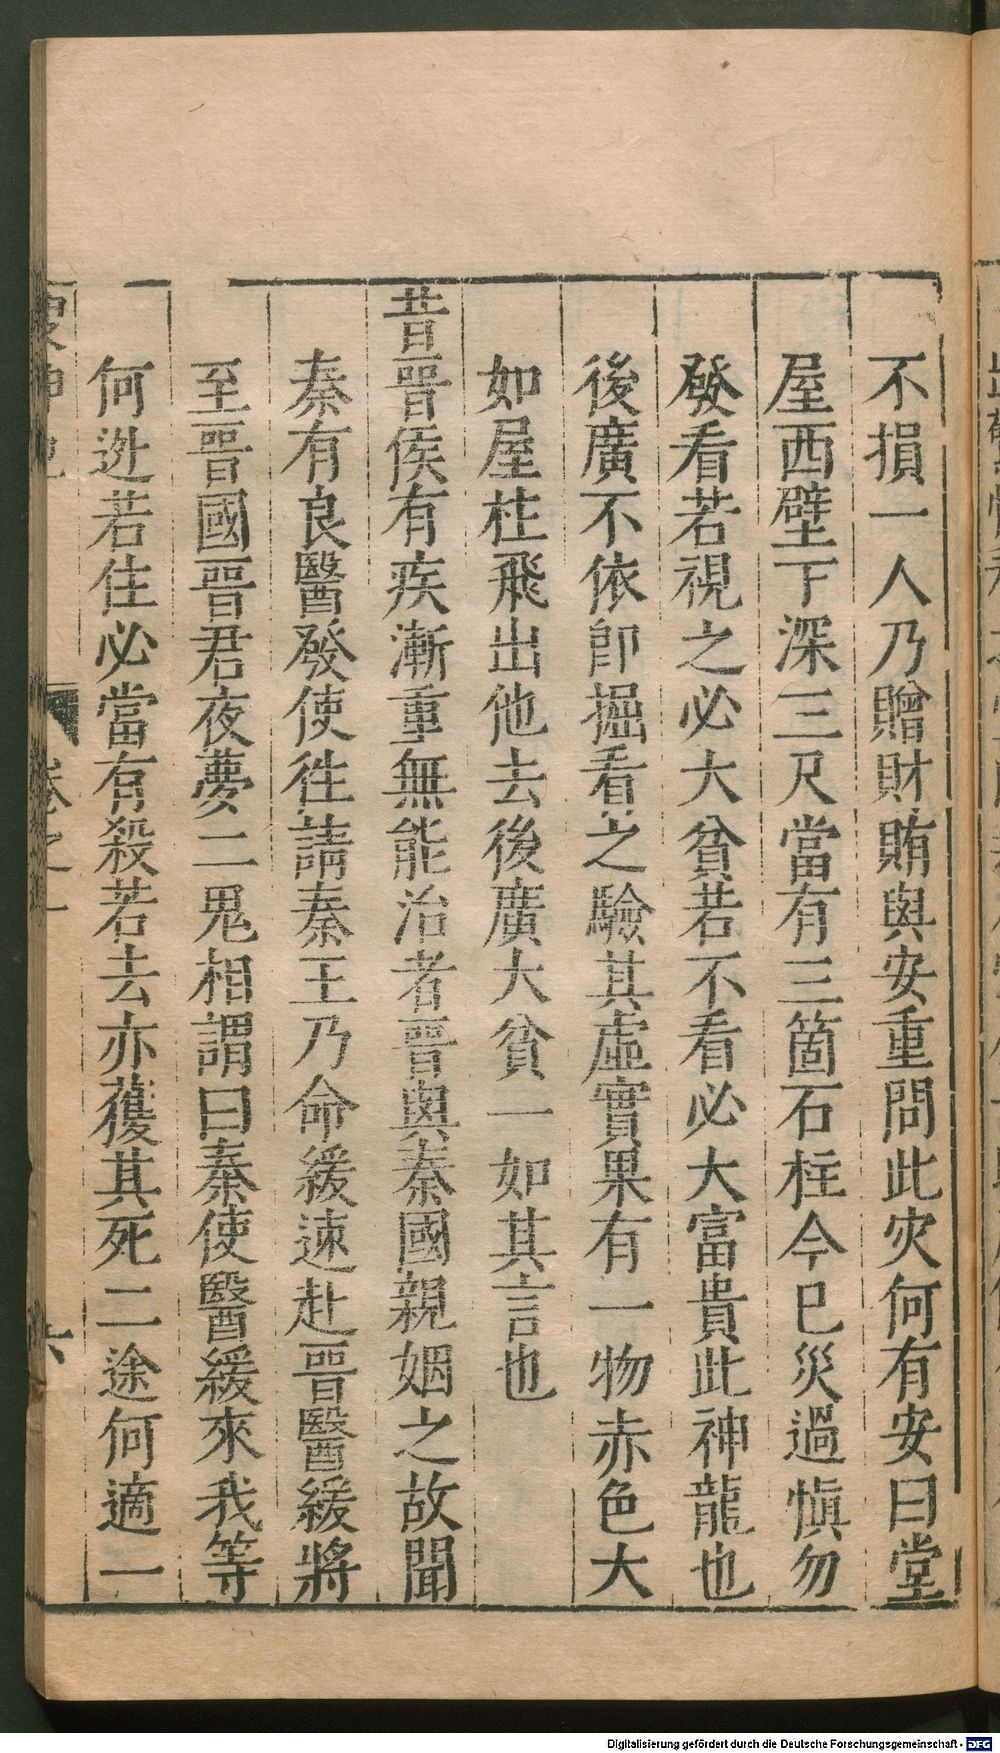 不損一人乃贈財賄與安重問此灾何有安曰堂
屋西壁下深三尺當有三箇石柱今巳災過愼勿
發看若視之必大貧若不看必大富貴此神龍也
後廣不依卽掘看之驗其虛實果有一物赤色大
如屋柱飛出他去後廣大貧一如其言也
昔晉侯有疾漸重無能治者晉與秦國親姻之故聞
秦有良醫發使徃請秦王乃命緩速赴晉醫緩將
至晉國晉君夜夢二鬼相謂曰秦使醫緩來我等
何迯若住必當有殺若去亦獲其死二途何適一
卷之一
六
Digitalisierung gefördert durch die Deutsche Forschungsgemeinschaft - DFG